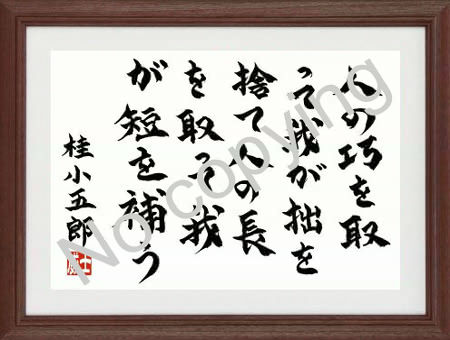 人の巧を取
って我が拙を
捨て人の長
を取って我
が短を補う
桂小五郎
No copying